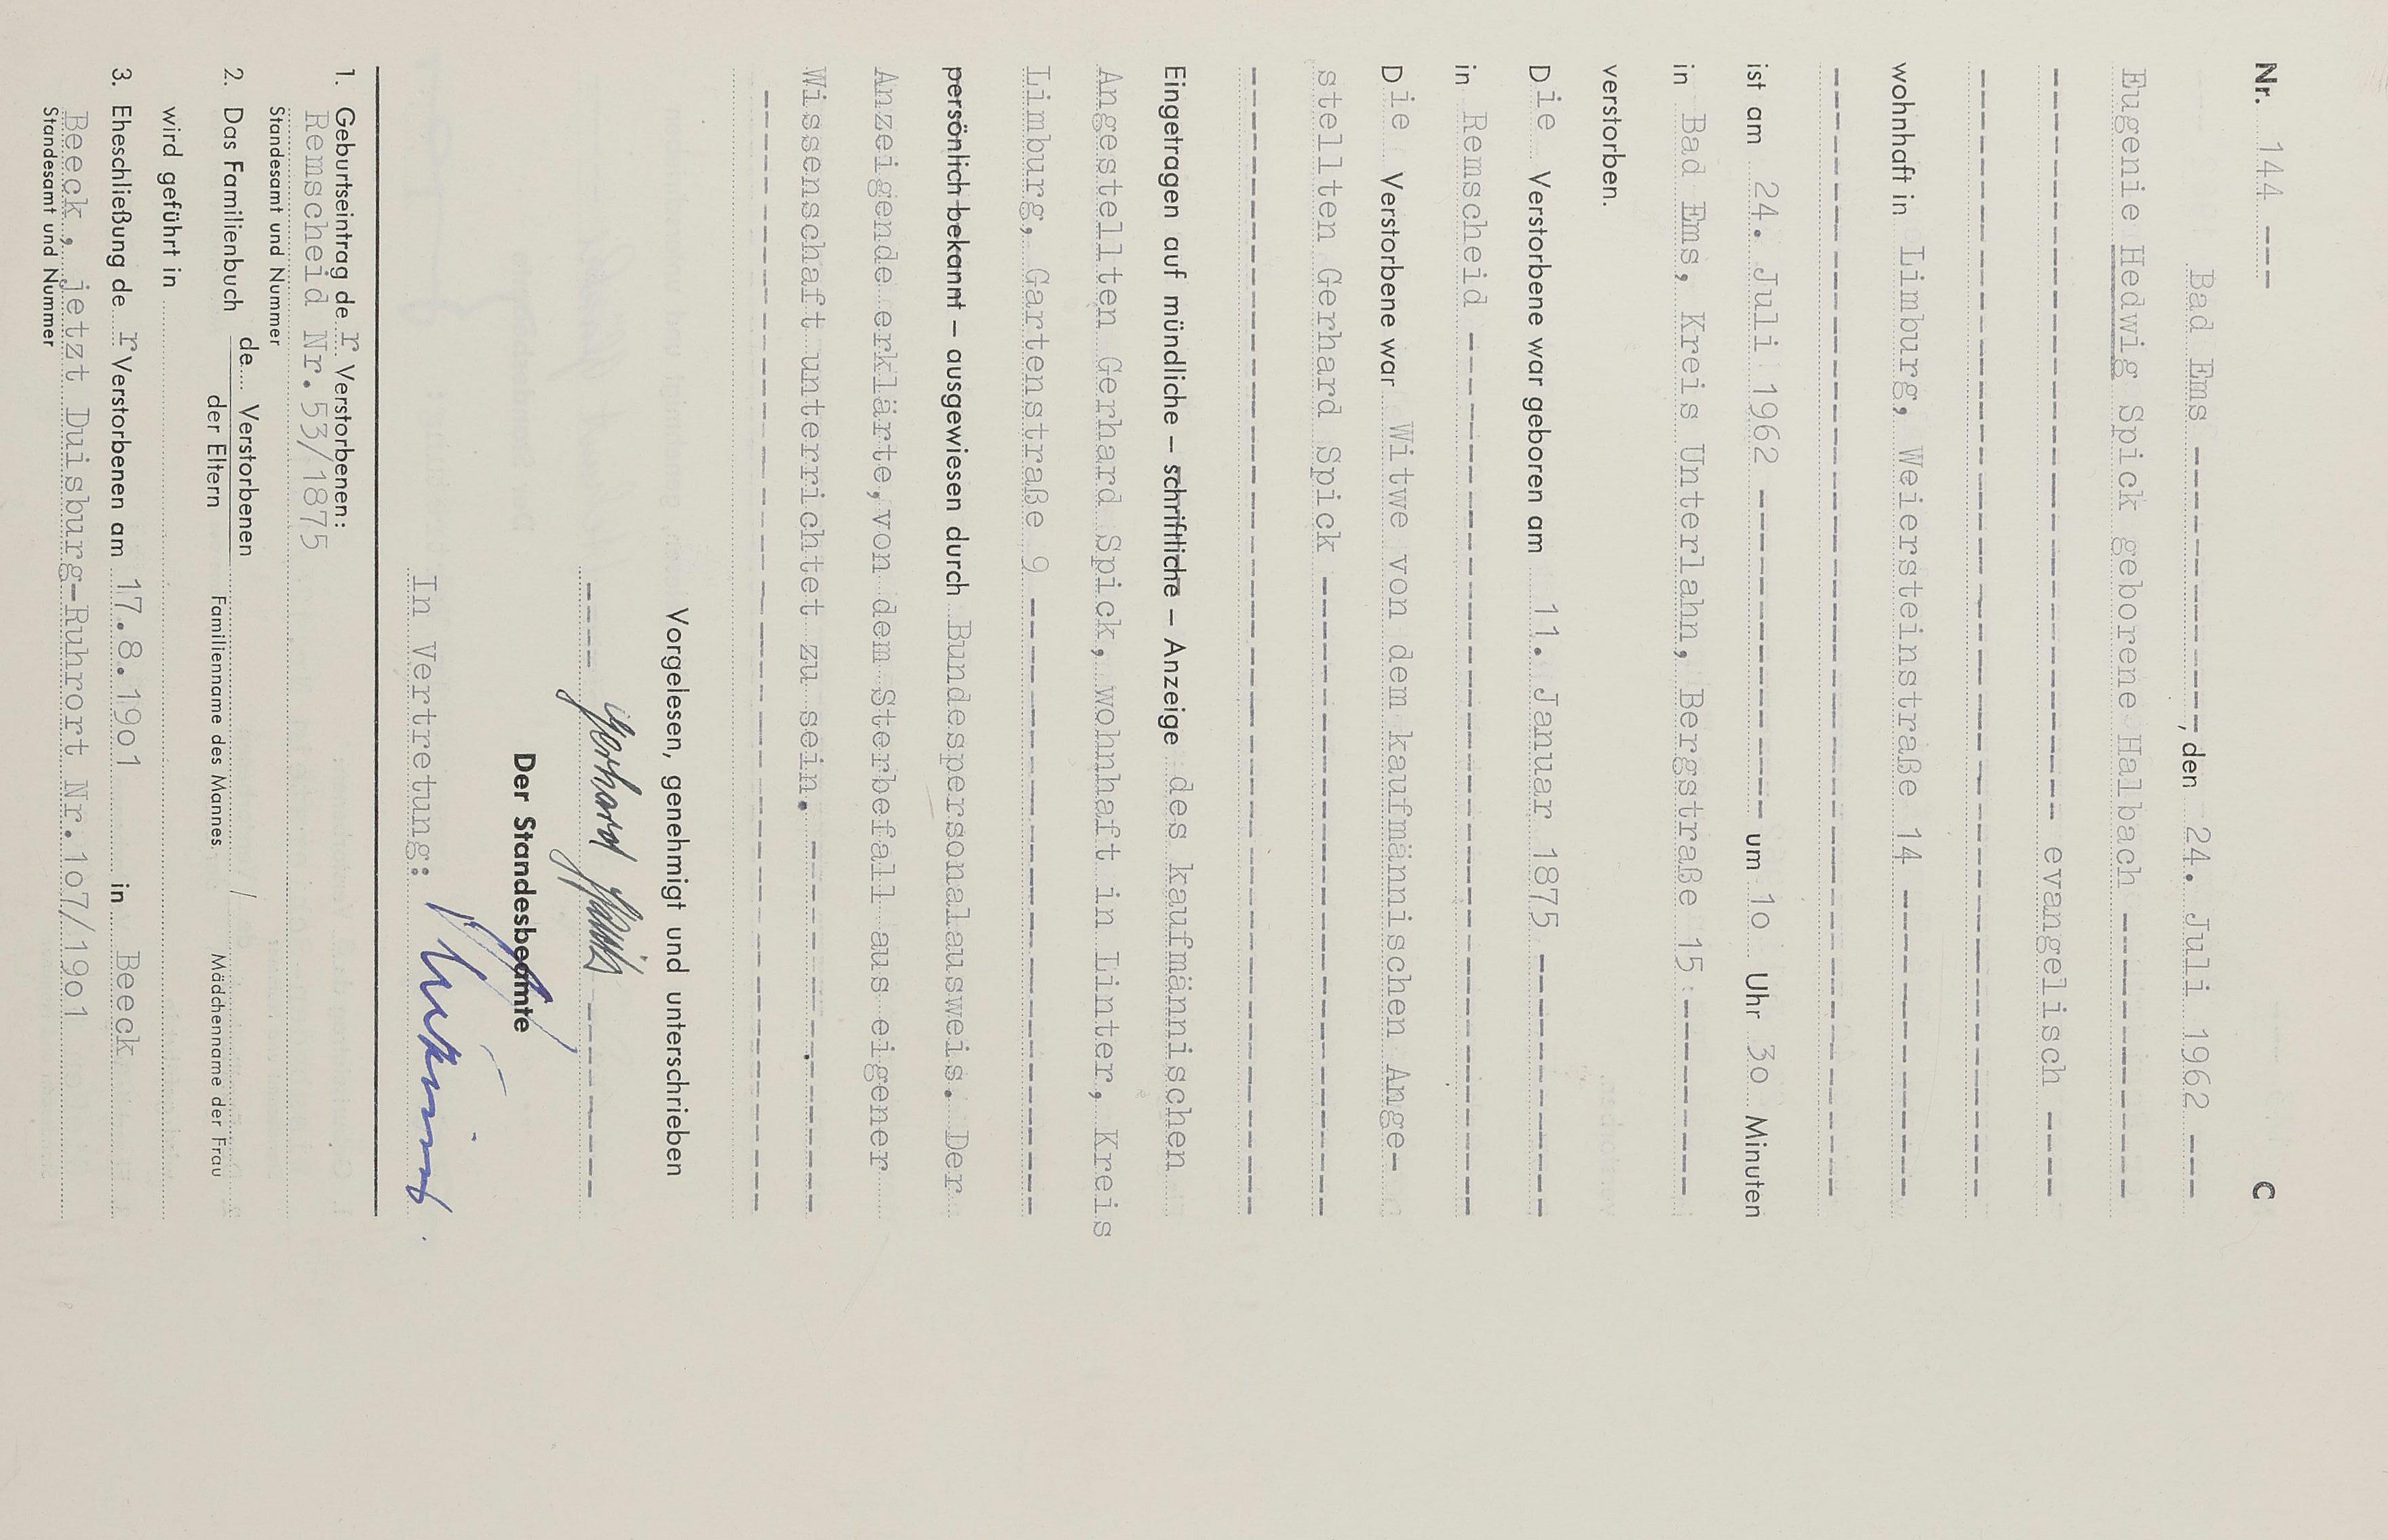 Nr. 144 --- C
Bad Ems ----------------, den 24. Juli 1962 ---
Eugenie Hedwig Spick geborene Halbach ---------------
---------------------------------------- evangelisch ----
------------------------------------------------------------
wohnhaft in Limburg, Weiersteinstraße 14 ----------------
------------------------------------------------------------
ist am 24. Juli 1962 ------------------ um 1o Uhr 3o Minuten
in Bad Ems, Kreis Unterlahn, Bergstraße 15 -----------
verstorben.
Die Verstorbene war geboren am 11. Januar 1875 --------------
in Remscheid ----------------------------------------------
Die Verstorbene war Witwe von dem kaufmännischen Ange-
stellten Gerhard Spick ----------------------------------
------------------------------------------------------------
Eingetragen auf mündliche – schriftliche – Anzeige des kaufmännischen
Angestellten Gerhard Spick, wohnhaft in Linter, Kreis
Limburg, Gartenstraße 9 ---------------------------------
persönlich bekannt – ausgewiesen durch Bundespersonalausweis. Der
Anzeigende erklärte, von dem Sterbefall aus eigener
Wissenschaft unterrichtet zu sein. --------------------
------------------------------------------------------------
Vorgelesen, genehmigt und unterschrieben
---- Gerhard Spick -----------
Der Standesbeamte
In Vertretung:
1. Geburtseintrag der Verstorbenen:
Remscheid Nr. 53/1875
Standesamt und Nummer
2. Das Familienbuch de.... Verstorbenen
der Eltern
/
Familienname des Mannes Mädchenname der Frau
wird geführt in
3. Eheschließung der Verstorbenen am 17.8.19o1 in Beeck
Beeck, jetzt Duisburg-Ruhrort Nr.1o7/19o1
Standesamt und Nummer